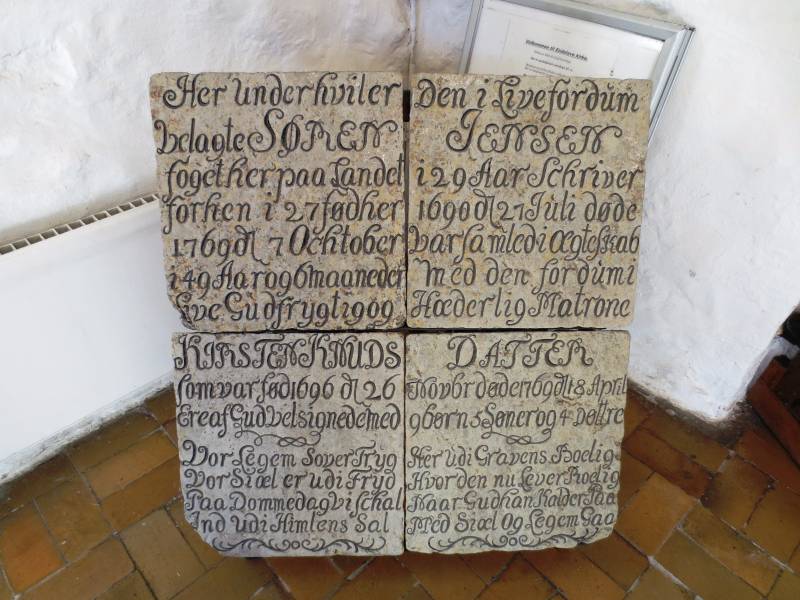 Velkommen til Endelave Kirke.
Her underhviler Den i Livefordum
velagte SØREN JENSEN
fogether paa Landet i 29 Aar Schriver
forhen i 27 fødher 1690 dl 27 Juli døde
1769 dl 7 Ochtober var samled i Ægteskab
i 49 Aar og 6 maaneder med den fordum i
Live Gudfrygt igog Hæderlig Matrone
KIRSTEN KNUDS DATTER
som var fød 1696 dl 26 Novbr døde 1769 dl 18 April
Ere af Gud velsignede med 9 børn 5 Søner og 4 Døttre
Vor Legem Sover Tryg Her udi Gravens Roelig
Vor Siæl er udi Fryd Hvorden nu Lever Roelig
Paa Dommedag vi schal Naar Gud han Kalder Paa
Ind udi Himlens Sal Med Siæl Og Legem Gaa